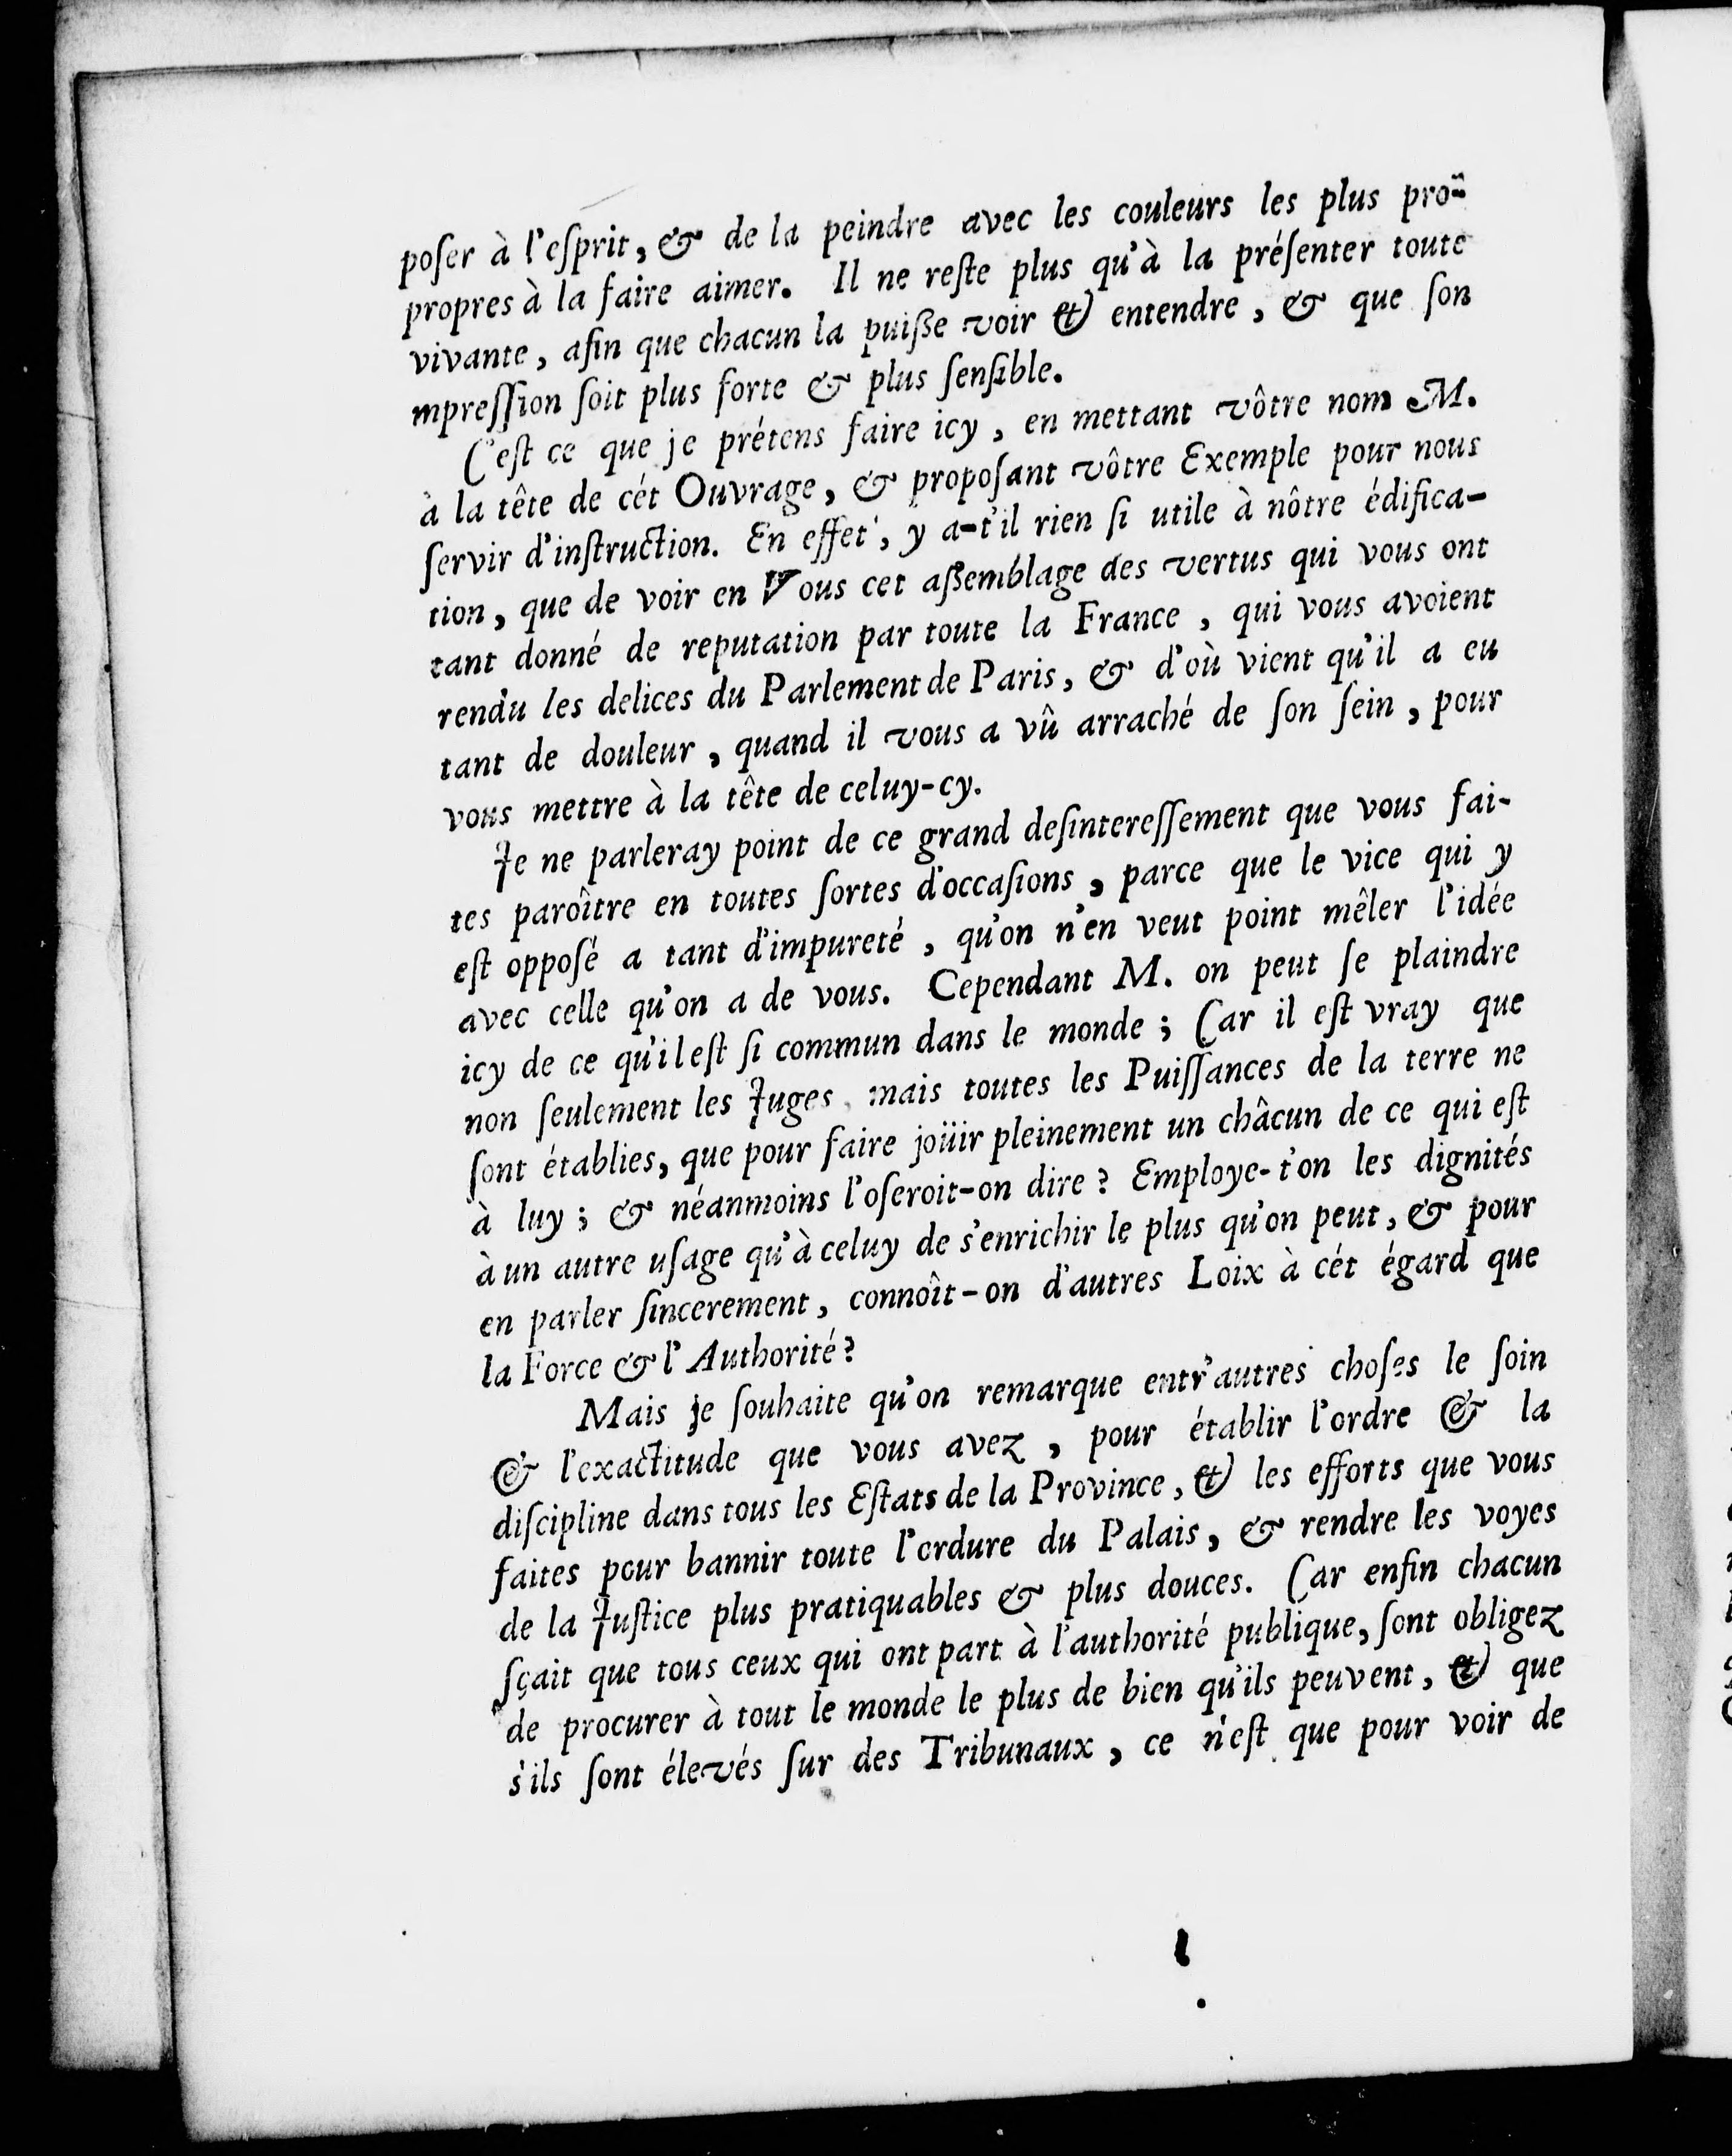 poſer à l'eſprit, & de la peindre avec les couleurs les plus pro-
propres à la faire aimer. Il ne reſte plus qu'à la préſenter toute
vivante, afin que chacun la puiſſe voir & entendre, & que ſon
mpreſſion ſoit plus forte & plus ſenſible.
C'eſt ce que je prétens faire icy, en mettant vôtre nom M.
à la tête de cét Ouvrage, & propoſant vôtre Exemple pour nous
ſervir d'inſtruction. En effet, y a-t'il rien ſi utile à nôtre édifica-
tion, que de voir en Vous cet aſſemblage des vertus qui vous ont
tant donné de reputation par toute la France, qui vous avoient
rendu les delices du Parlement de Paris, & d'où vient qu'il a eu
tant de douleur, quand il vous a vû arraché de ſon ſein, pour
vous mettre à la tête de celuy-cy.
Je ne parleray point de ce grand deſintereſſement que vous fai-
tes paroître en toutes ſortes d'occaſions, parce que le vice qui y
eſt oppoſé a tant d'impureté, qu'on n'en veut point mêler l'idée
avec celle qu'on a de vous. Cependant M. on peut ſe plaindre
icy de ce qu'il eſt ſi commun dans le monde; Car il eſt vray que
non ſeulement les Juges, mais toutes les Puiſſances de la terre ne
ſont établies, que pour faire joüir pleinement un châcun de ce qui eſt
à luy; & néanmoins l'oſeroit-on dire? Employe-t'on les dignités
à un autre uſage qu'à celuy de s'enrichir le plus qu'on peut, & pour
en parler ſincerement, connoît-on d'autres Loix à cét égard que
la Force & l'Authorité?
Mais je ſouhaite qu'on remarque entr'autres choſes le ſoin
& l'exactitude que vous avez, pour établir l'ordre & la
diſcipline dans tous les Eſtats de la Province, & les efforts que vous
faites pour bannir toute l'ordure du Palais, & rendre les voyes
de la Juſtice plus pratiquables & plus douces. Car enfin chacun
ſçait que tous ceux qui ont part à l'authorité publique, ſont obligez
de procurer à tout le monde le plus de bien qu'ils peuvent, & que
s'ils ſont élevés ſur des Tribunaux, ce n'eſt que pour voir de